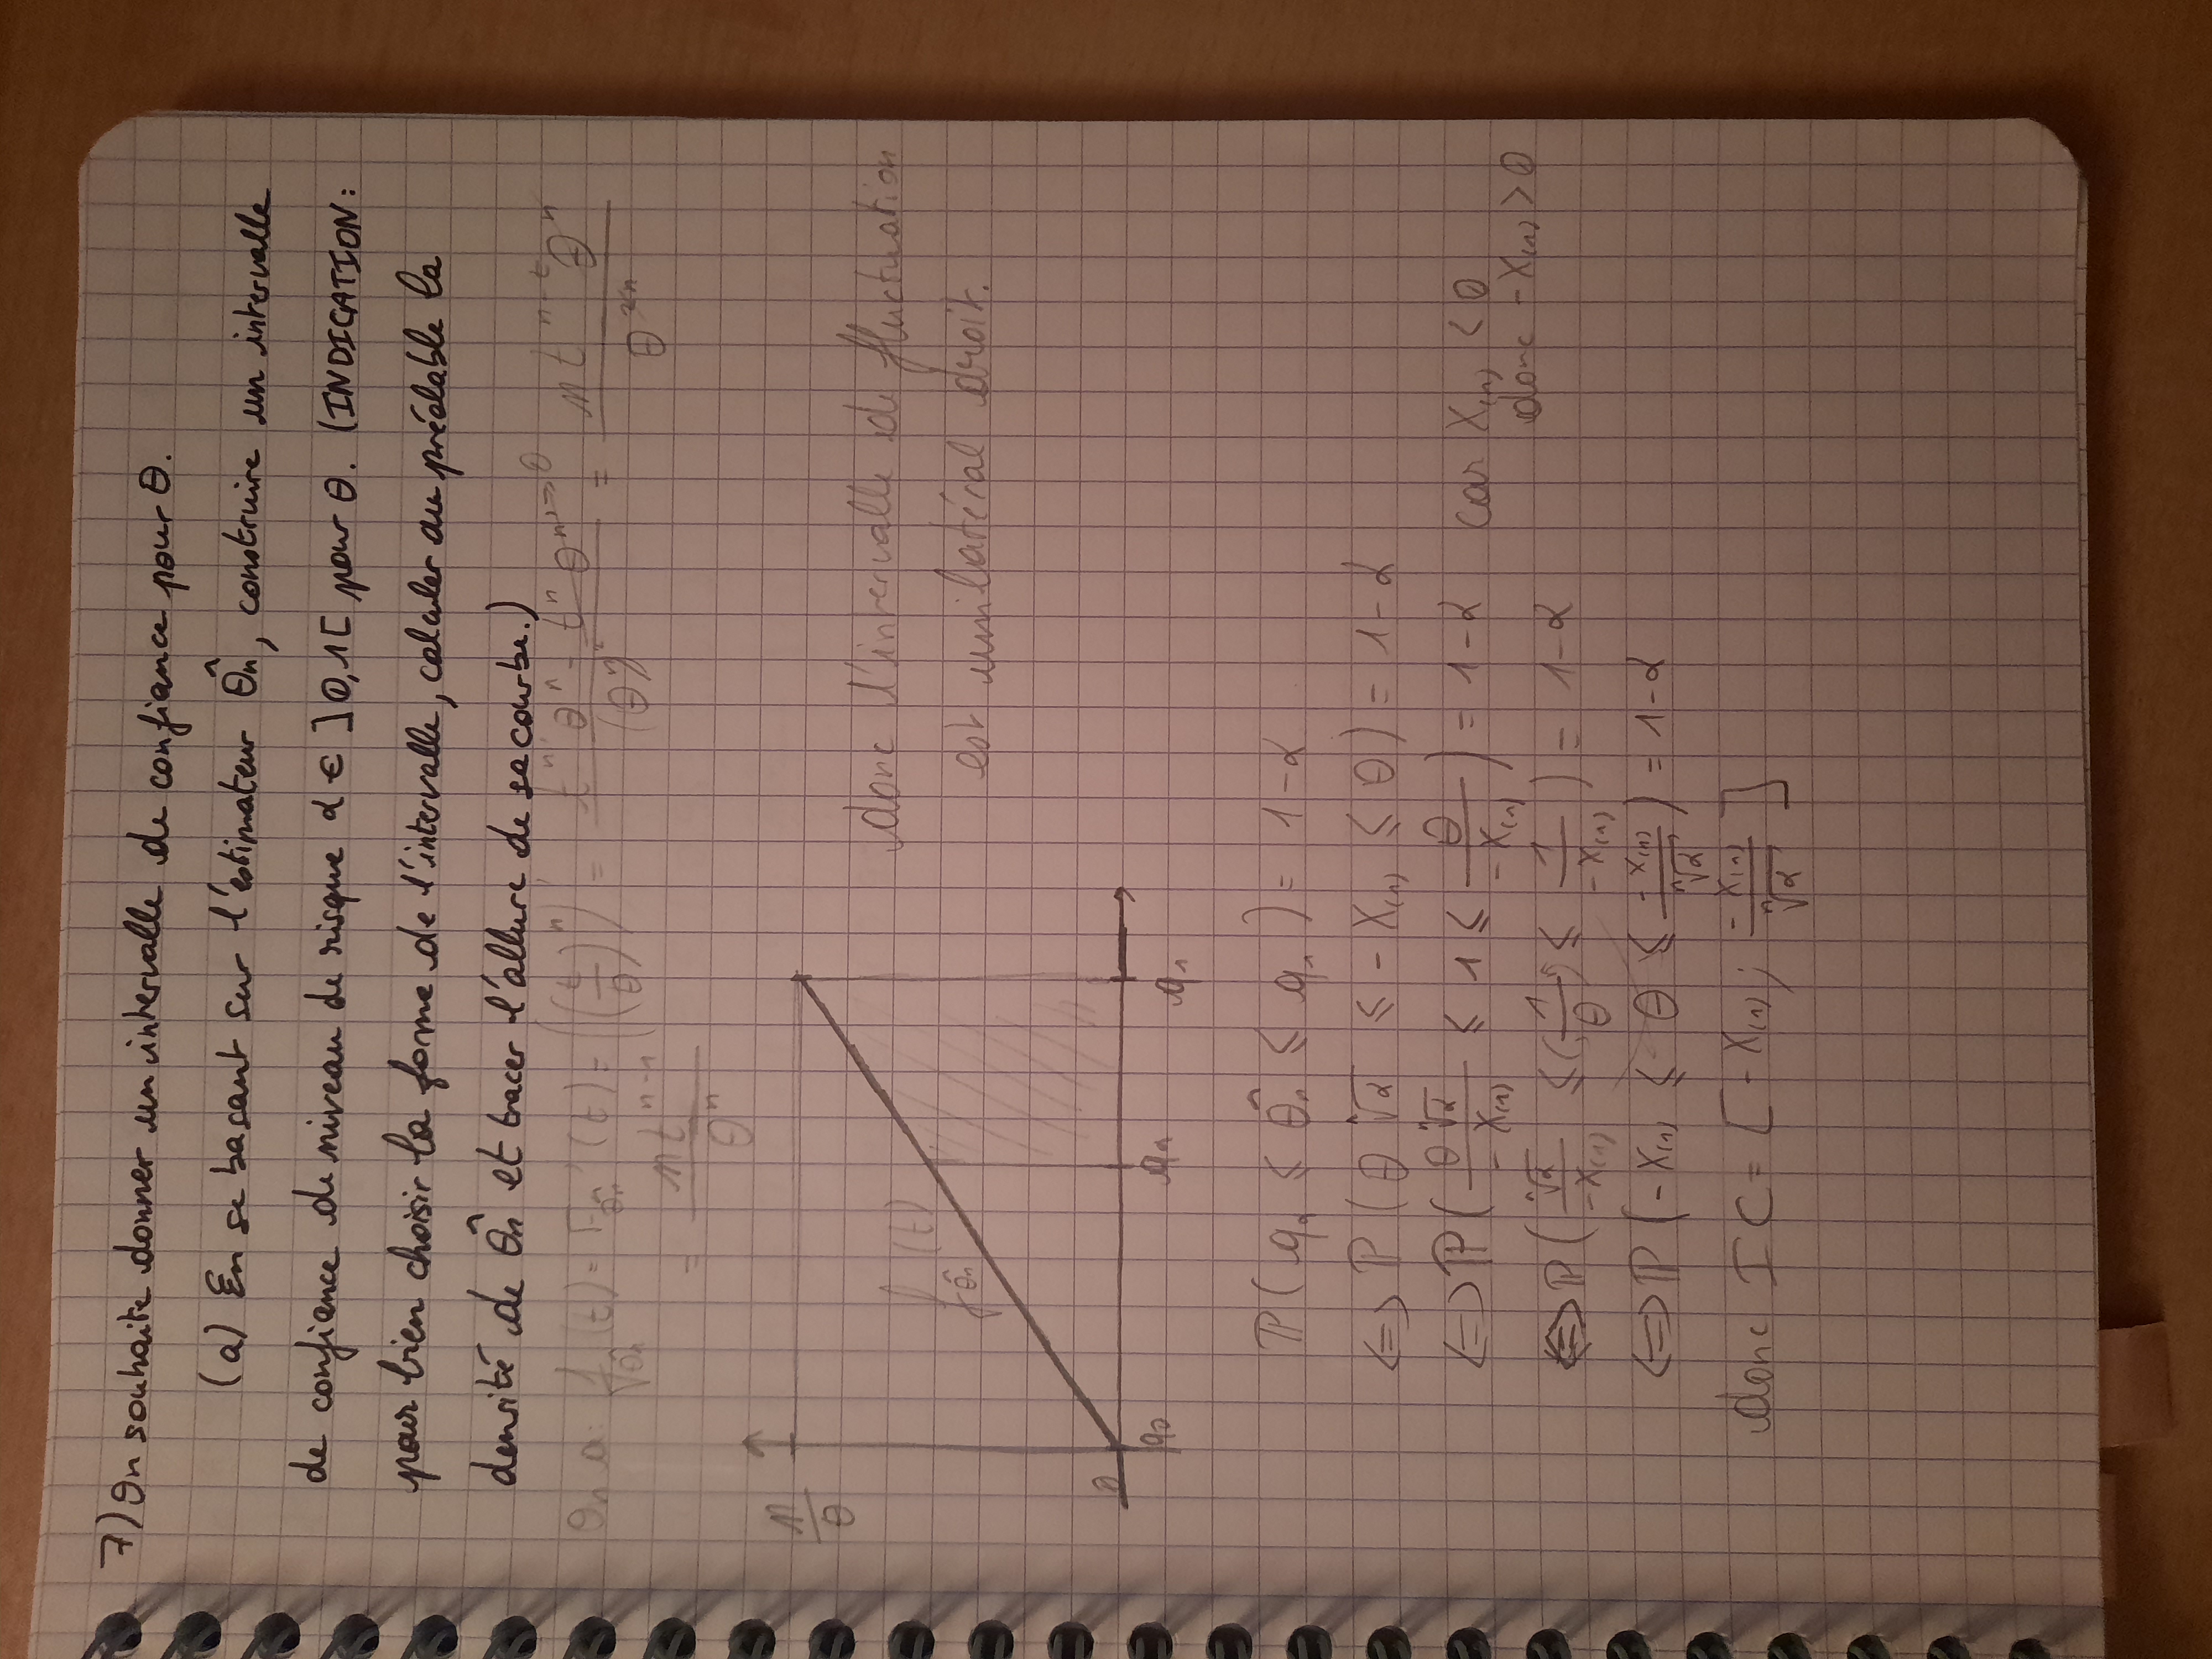 7) On souhaite donner un intervalle de confiance pour θ.
(a) En se basant sur l'estimateur θ̂n, construire un intervalle
de confiance de niveau de risque α ∈ ]0,1[ pour θ. (INDICATION:
pour bien choisir la forme de l'intervalle, calculer au préalable la
densité de θ̂n et tracer l'allure de sa courbe.)
On a: f_θ̂n (t) = F_θ̂n' (t) = ((t/θ)^n)' = (t^n' θ^n - t^n θ^n' => 0)/(θ^n)^2 = (n t^(n-1) θ^n)/θ^(2n)
= (n t^(n-1))/θ^n
n/θ
f_θ̂n (t)
donc l'intervalle de fluctuation
est unilatéral droit.
0
q0 qα q1
ℙ( qα ≤ θ̂n ≤ q1 ) = 1-α
⟺ ℙ( θ ⁿ√α ≤ -X(n) ≤ θ ) = 1-α
⟺ ℙ( (θ ⁿ√α)/(-X(n)) ≤ 1 ≤ θ/(-X(n)) ) = 1-α car X(n) < 0
donc -X(n) > 0
⟺ ℙ( ⁿ√α/(-X(n)) ≤ (1/θ) ≤ 1/(-X(n)) ) = 1-α
⟺ ℙ( -X(n) ≤ θ ≤ -X(n)/ⁿ√α ) = 1-α
donc IC = [ -X(n) ; -X(n)/ⁿ√α ]